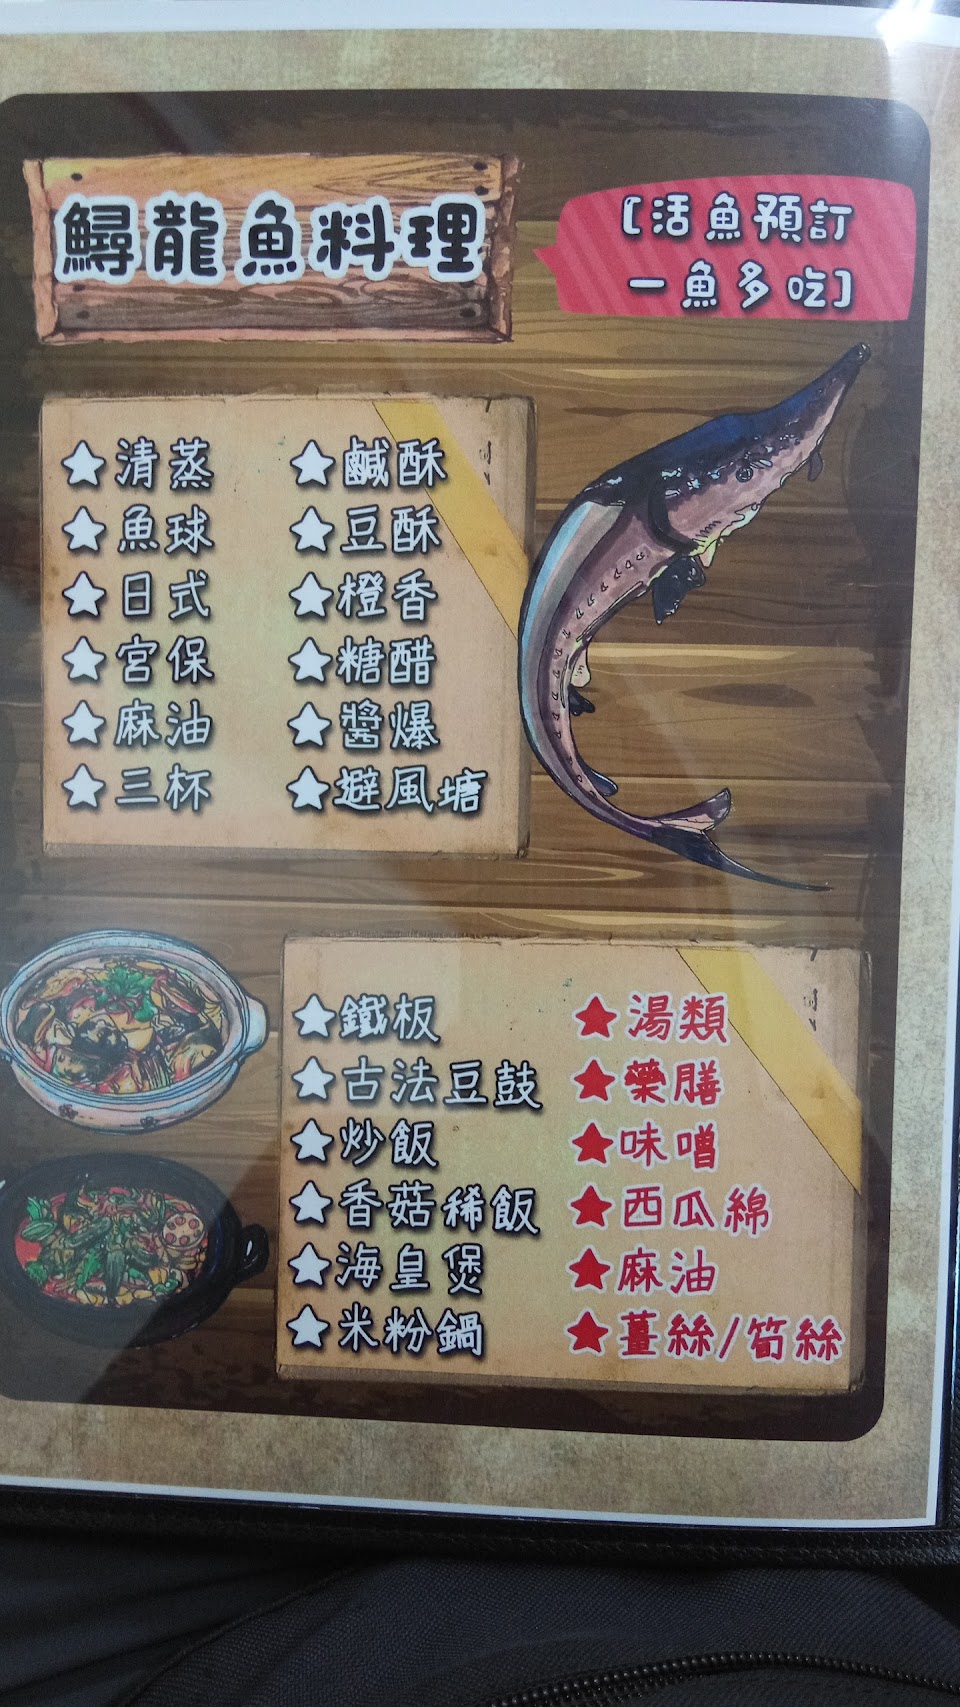 鱘龍魚料理
[活魚預訂
一魚多吃]
★清蒸
★魚球
★日式
★宮保
★麻油
★三杯
★鹹酥
★豆酥
★橙香
★糖醋
★醬爆
★避風塘
★鐵板
★古法豆鼓
★炒飯
★香菇稀飯
★海皇煲
★米粉鍋
★湯類
★藥膳
★味噌
★西瓜綿
★麻油
★薑絲/筍絲